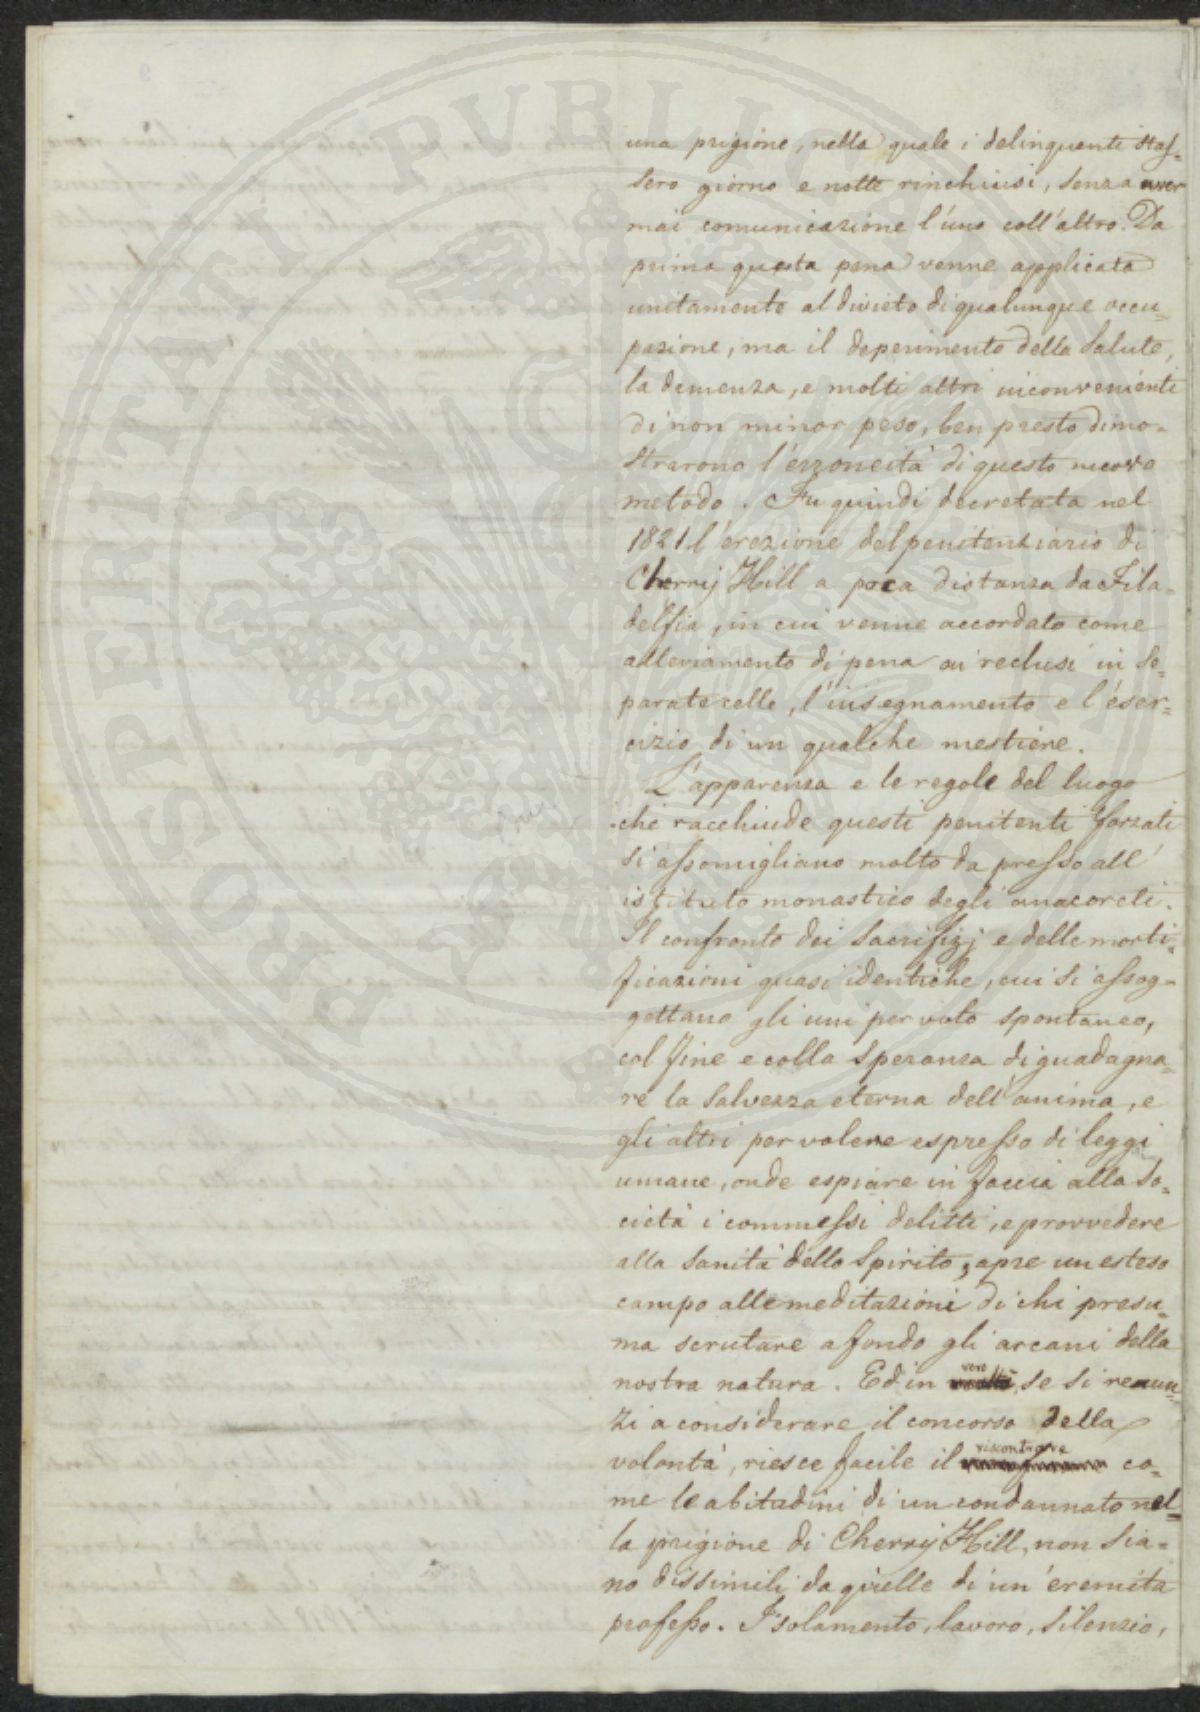 PROSPERITATI PVBLICAE
una prigione, nella quale i delinquenti stas-
sero giorno e notte rinchiusi, senza aver
mai comunicazione l'uno coll'altro. Da
prima questa pena venne applicata
unitamente al divieto di qualunque occu-
pazione, ma il deperimento della salute,
la demenza, e molti altri inconvenienti
di non minor peso, ben presto dimo-
strarono l'erroneità di questo nuovo
metodo. Fu quindi decretata nel
1821 l'erezione del penitenziario di
Cherry Hill a poca distanza da Fila-
delfia, in cui venne accordato come
alleviamento di pena ai reclusi in se-
parate celle, l'insegnamento e l'eser-
cizio di un qualche mestiere.
L'apparenza e le regole del luogo
che racchiude questi penitenti forzati
si assomigliano molto da presso all'
istituto monastico degli anacoreti.
Il confronto dei sacrifizj e delle morti-
ficazioni quasi identiche, cui si assog-
gettano gli uni per voto spontaneo,
col fine e colla speranza di guadagna-
re la salvezza eterna dell'anima, e
gli altri per volere espresso di leggi
umane, onde espiare in faccia alla so-
cietà i commessi delitti, e provvedere
alla sanità dello spirito, apre un esteso
campo alle meditazioni di chi presu-
ma scrutare a fondo gli arcani della
nostra natura. Ed in vero, se si renun-
zi a considerare il concorso della
volontà, riesce facile il riscontrare co-
me le abitudini di un condannato nel-
la prigione di Cherry Hill, non sia-
no dissimili da quelle di un'eremita
professo. Isolamento, lavoro, silenzio,